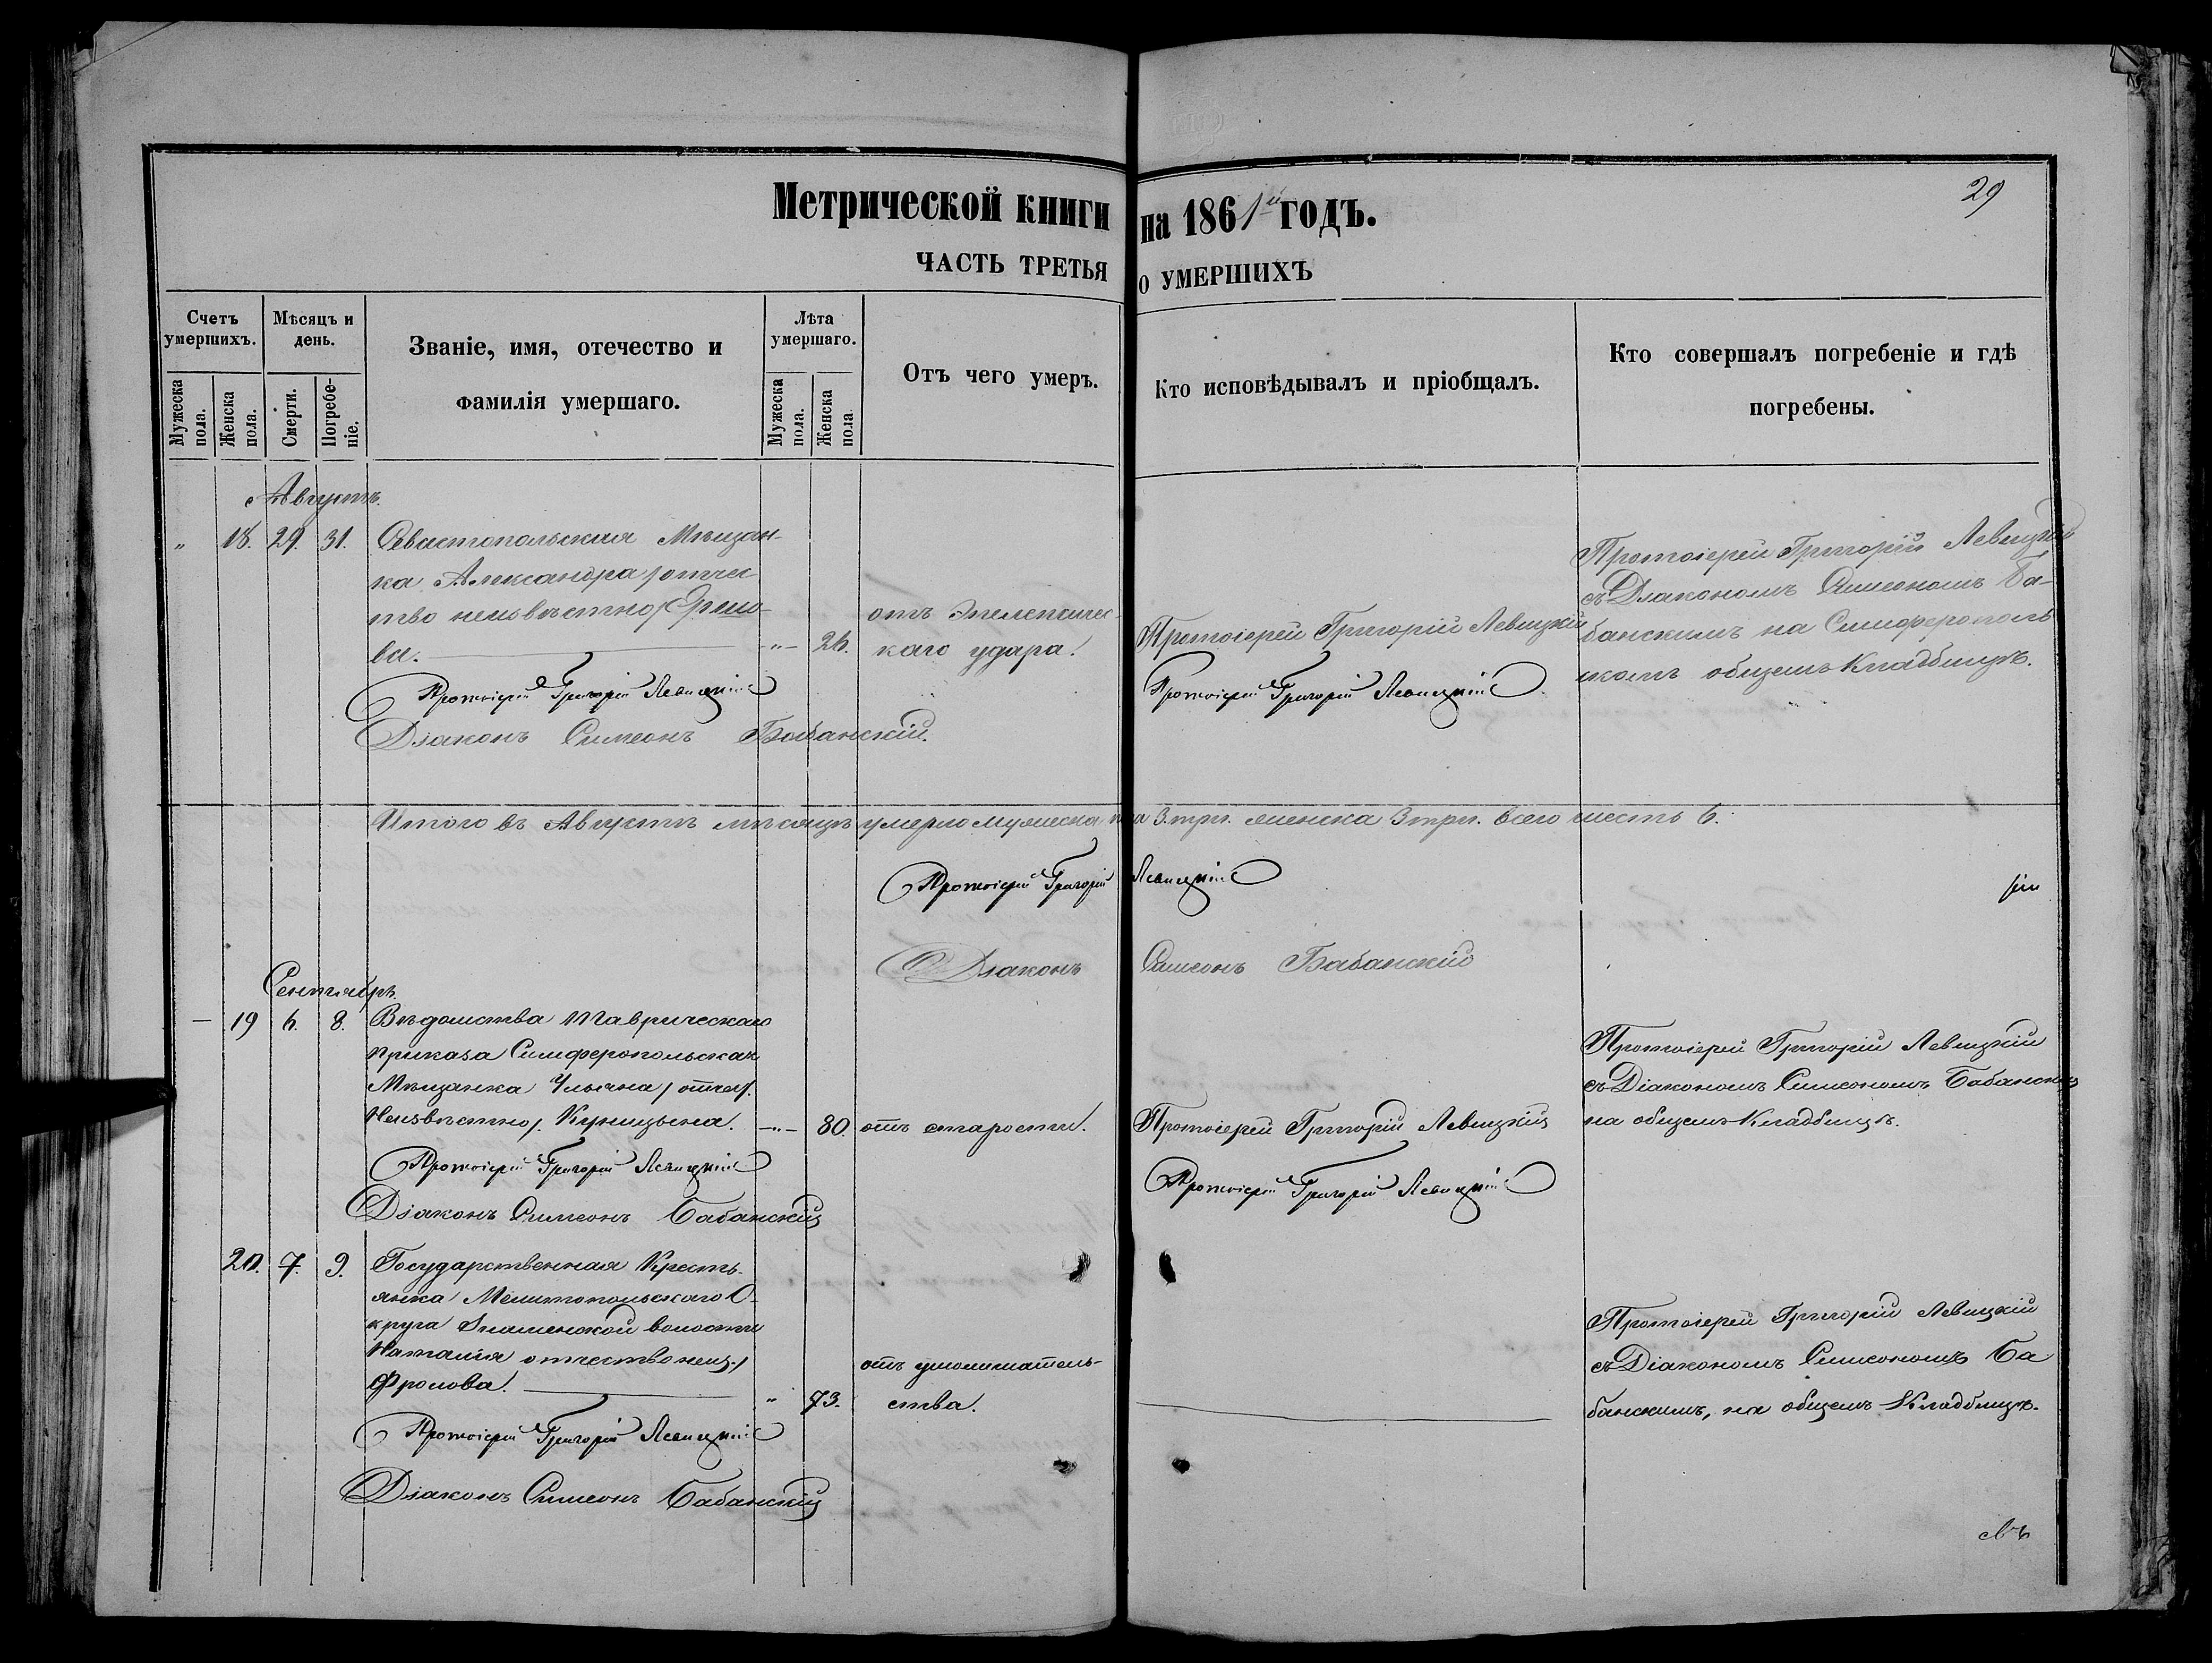 29
Метрической книги на 1861й годъ.
ЧАСТЬ ТРЕТЬЯ о УМЕРШИХЪ
Счетъ умершихъ.
Мужеска пола.
Женска пола.
Мѣсяцъ и день.
Смерти.
Погребеніе.
Званіе, имя, отечество и
фамилія умершаго.
Лѣта умершаго.
Мужеска пола.
Женска пола.
Отъ чего умеръ.
Кто исповѣдывалъ и пріобщалъ.
Кто совершалъ погребеніе и гдѣ
погребены.
Августъ.
„ 18. 29. 31. Севастопольская Мѣщан-
ка Александра /отчес
тво неизвѣстно/
ва.
-„- 26.
отъ Эпелептичес-
каго удара.
Протоіерей Григорій Левицкій
Протоіерей Григорій Левицкій
съ Діакономъ Симеономъ Ба-
банскимъ на Симферополь
скомъ общемъ Кладбищѣ.
Протоіерей Григорій Левицкій
Діаконъ Симеонъ Бабанскій.
Протоіерей Григорій Левицкій
Итого въ Августѣ мѣсяцѣ умерло мужеска пола 3. три. женска 3 три. всего шесть 6.
Протоіерей Григорій Левицкій
Діаконъ Симеонъ Бабанскій
Сентябрь.
— 19 6. 8. Вѣдомства Таврическаго
приказа Симферопольская
Мѣщанка Ульяна /отчес.
Неизвѣстно/. Куницына.
-„- 80.
отъ старости.
Протоіерей Григорій Левицкій
Протоіерей Григорій Левицкій
съ Діакономъ Симеономъ Бабанскимъ
на общемъ Кладбищѣ.
Протоіерей Григорій Левицкій
Діаконъ Симеонъ Бабанскій
Протоіерей Григорій Левицкій
20. 7. 9. Государственная Кресть-
янка Мелитопольскаго О-
круга Знаменской волости
Наталія отчество неиз./
Фролова.
„ 73.
отъ умолишатель-
ства.
Протоіерей Григорій Левицкій
съ Діакономъ Симеономъ Ба
банскимъ, на общемъ Кладбищѣ.
Протоіерей Григорій Левицкій
Діаконъ Симеонъ Бабанскій